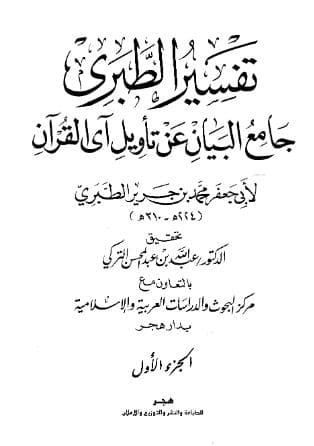 تفسير الطبري
جامع البيان عن تأويل آي القرآن
لأبي جعفر محمد بن جرير الطبري
( ٢٢٤هـ - ٣١٠هـ )
تحقيق
الدكتور عبد الله بن عبد المحسن التركي
بالتعاون مع
مركز البحوث والدراسات العربية والإسلامية
بدار هجر
الجزء الأول
هجر
للطباعة والنشر والتوزيع والإعلان